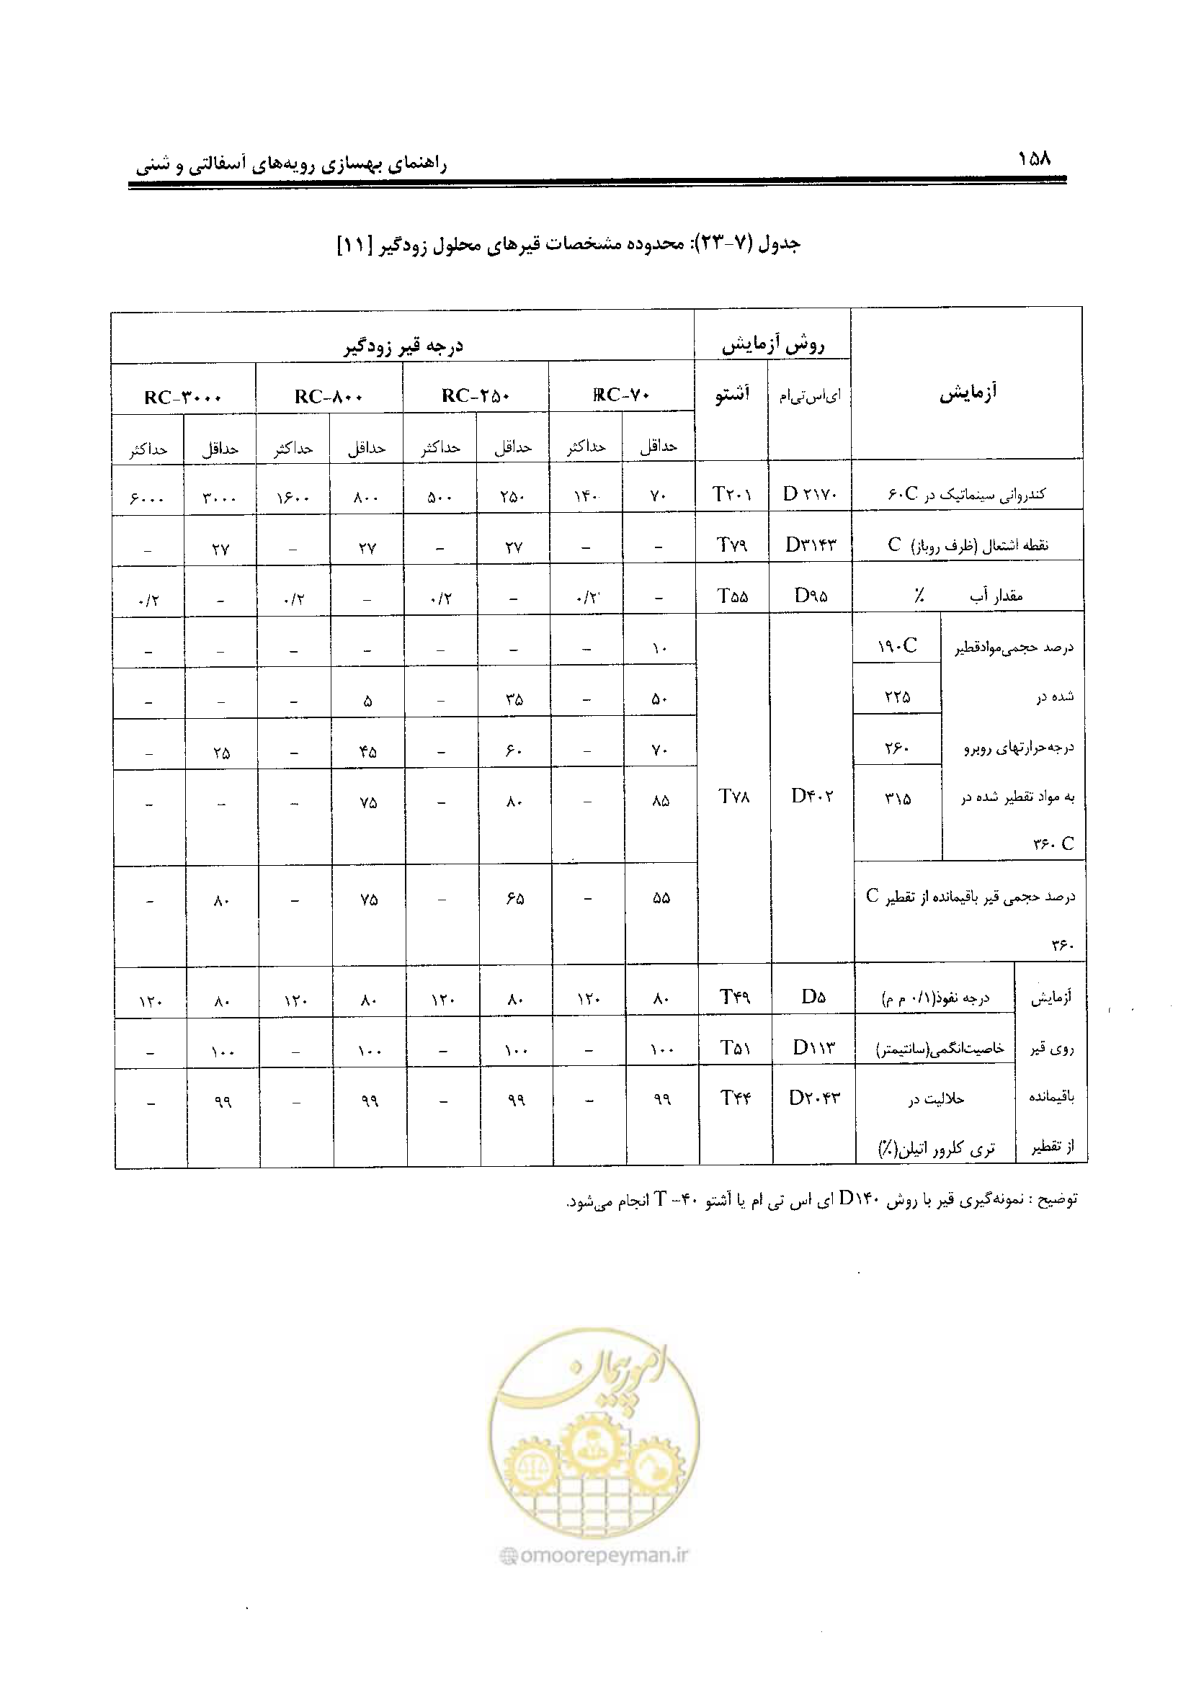 ۱۵۸ راهنمای بهسازی رویه‌های آسفالتی و شنی
جدول (۷-۲۳): محدوده مشخصات قیرهای محلول زودگیر [۱۱]
آزمایش روش آزمایش درجه قیر زودگیر
ای‌اس‌تی‌ام آشتو RC-۷۰ RC-۲۵۰ RC-۸۰۰ RC-۳۰۰۰
حداقل حداکثر حداقل حداکثر حداقل حداکثر حداقل حداکثر
کندروانی سینماتیک در ۶۰C D ۲۱۷۰ T۲۰۱ ۷۰ ۱۴۰ ۲۵۰ ۵۰۰ ۸۰۰ ۱۶۰۰ ۳۰۰۰ ۶۰۰۰
نقطه اشتعال (ظرف روباز) C D۳۱۴۳ T۷۹ – – ۲۷ – ۲۷ – ۲۷ –
مقدار آب ٪ D۹۵ T۵۵ – ۰/۲ – ۰/۲ – ۰/۲ – ۰/۲
درصد حجمی‌موادقطیر ۱۹۰C ۱۰ – – – – – – –
شده در ۲۲۵ ۵۰ – ۳۵ – ۵ – – –
درجه‌حرارتهای روبرو ۲۶۰ ۷۰ – ۶۰ – ۴۵ – ۲۵ –
به مواد تقطیر شده در ۳۱۵ D۴۰۲ T۷۸ ۸۵ – ۸۰ – ۷۵ – – –
۳۶۰ C
درصد حجمی قیر باقیمانده از تقطیر C ۵۵ – ۶۵ – ۷۵ – ۸۰ –
۳۶۰
آزمایش درجه نفوذ(۰/۱ م م) D۵ T۴۹ ۸۰ ۱۲۰ ۸۰ ۱۲۰ ۸۰ ۱۲۰ ۸۰ ۱۲۰
روی قیر خاصیت‌انگمی(سانتیمتر) D۱۱۳ T۵۱ ۱۰۰ – ۱۰۰ – ۱۰۰ – ۱۰۰ –
باقیمانده حلالیت در D۲۰۴۳ T۴۴ ۹۹ – ۹۹ – ۹۹ – ۹۹ –
از تقطیر تری کلرور اتیلن(٪)
توضیح : نمونه‌گیری قیر با روش D۱۴۰ ای اس تی ام یا آشتو T -۴۰ انجام می‌شود.
امور پیمان
@omoorepeyman.ir